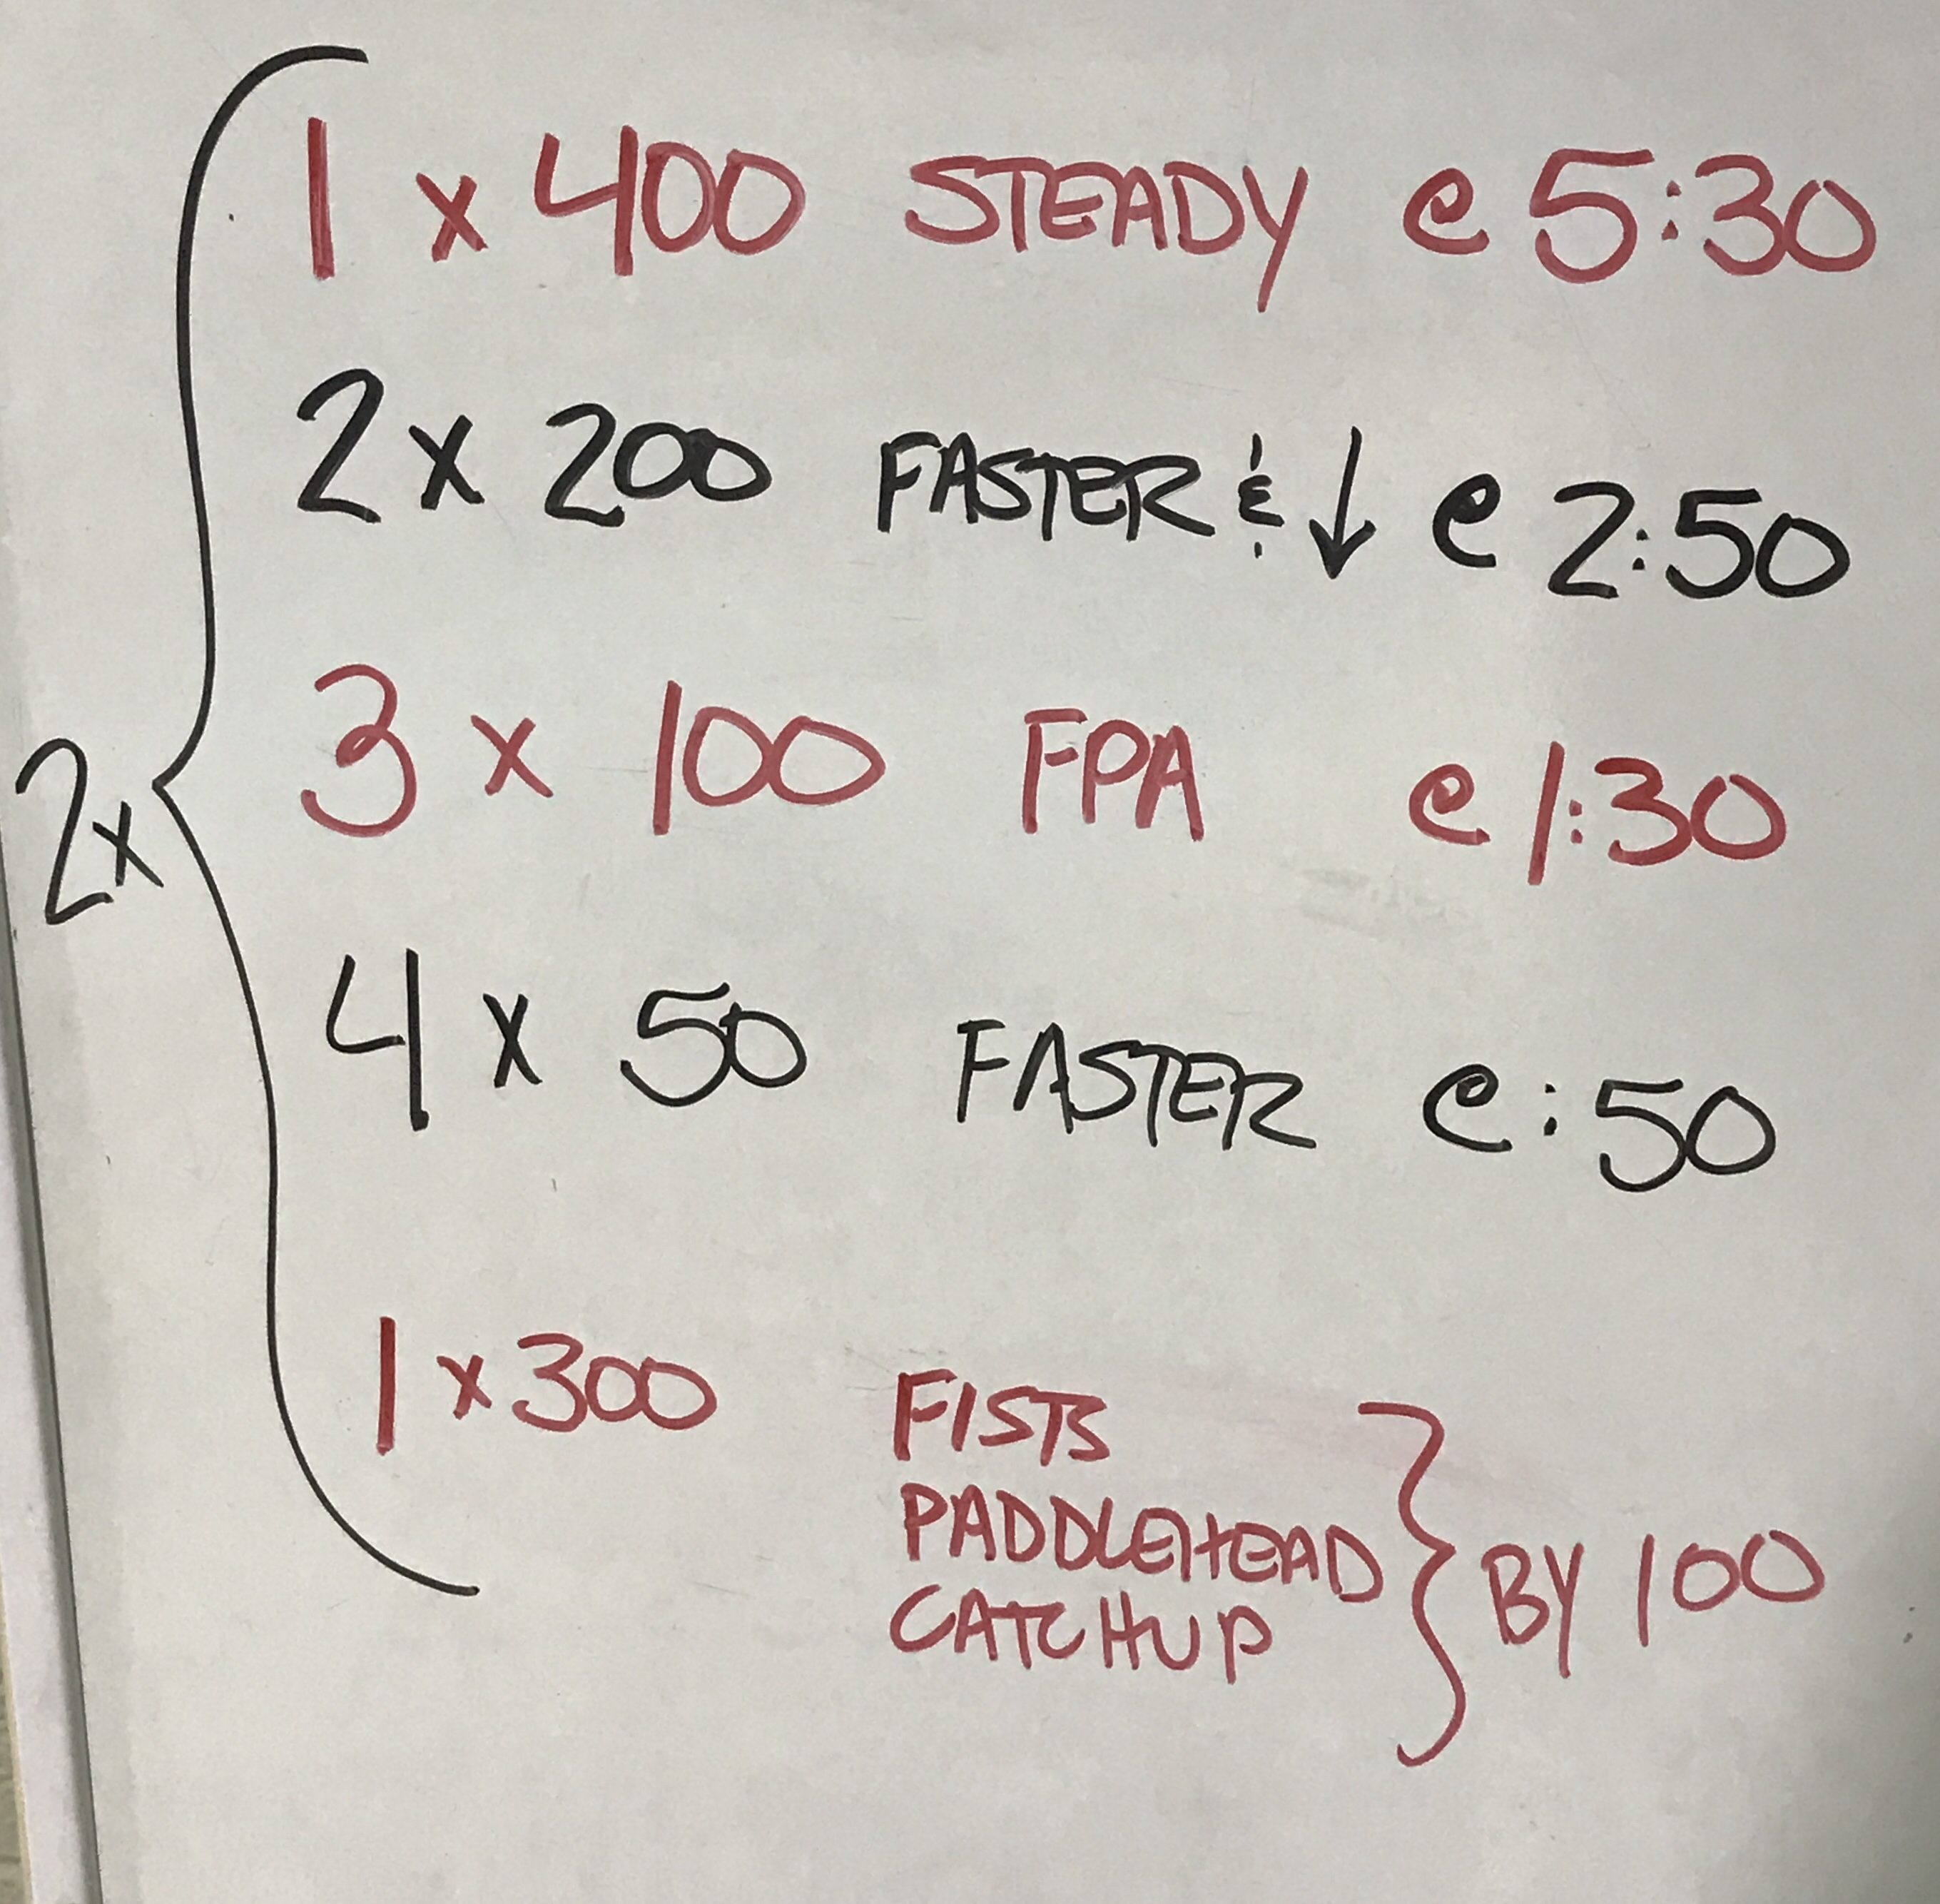 1 x 400 STEADY @ 5:30
2 x 200 FASTER & ↓ @ 2:50
3 x 100 FPA @ 1:30
2x
4 x 50 FASTER @ :50
1 x 300 FISTS
PADDLEHEAD
CATCHUP
BY 100